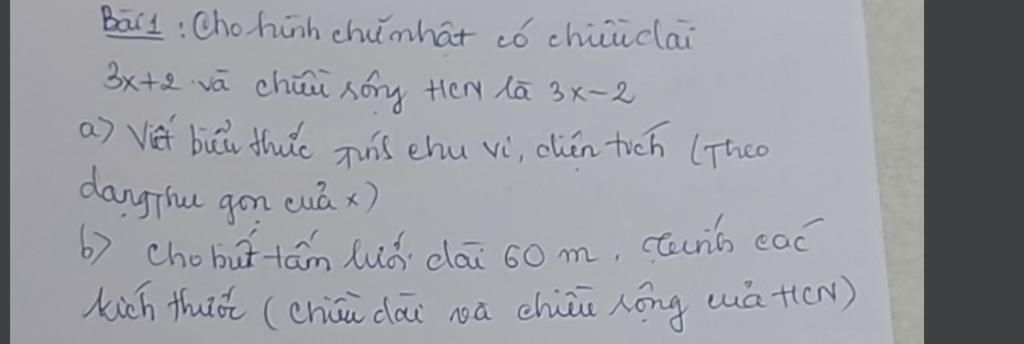 Bài 1 : Cho hình chữ nhật có chiều dài
3x+2 và chiều rộng HCN là 3x-2
a) Viết biểu thức tính chu vi, diện tích (Theo
dạng Thu gọn của x)
b) Cho biết tấm lưới dài 60 m. Tính các
kích thước (chiều dài và chiều rộng của HCN)